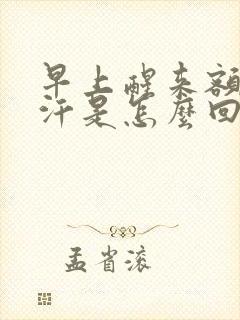 早上醒来额
汗是怎麽回
孟省滚